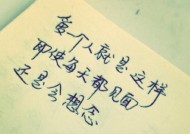 爱个人就是这样
即使每天都见面
还是会想念